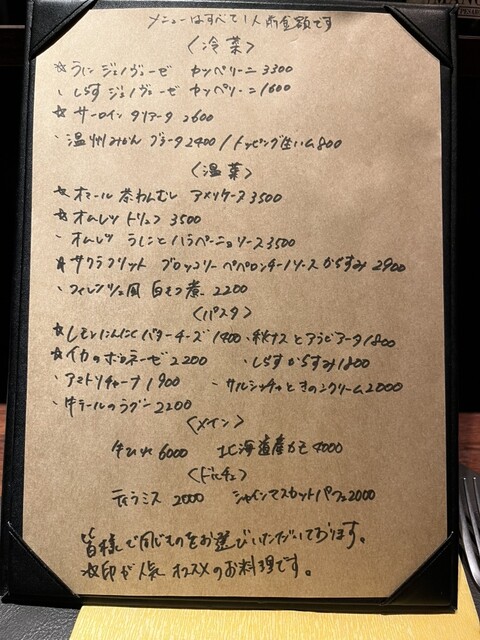 メニューはすべて1人前金額です
〈冷菜〉
☆うに ジェノヴェーゼ カッペリーニ 3300
・しらす ジェノヴェーゼ カッペリーニ 1600
☆サーロイン タリアータ 2600
・温州みかん ブラータ2400/トッピング生ハム800
〈温菜〉
☆オマール 茶わんむし アメリケーヌ3500
☆オムレツ トリュフ 3500
・オムレツ うにとハラペーニョソース3500
☆サクラフリット ブロッコリーペペロンチーノソース からすみ 2900
・フィレンツェ風 白もつ煮 2200
〈パスタ〉
☆レモンにんにくバターチーズ1900・秋ナスとアラビアータ1800
☆イカのボロネーゼ2200 ・しらすからすみ1800
・アマトリチャーナ1900 ・サルシッチャときのこクリーム2000
・牛テールのラグー2200
〈メイン〉
牛ひれ6000 北海道産カモ4000
〈ドルチェ〉
ティラミス 2000 シャインマスカットパフェ2000
皆様で同じものをお選びいただいております。
☆印が人気オススメのお料理です。